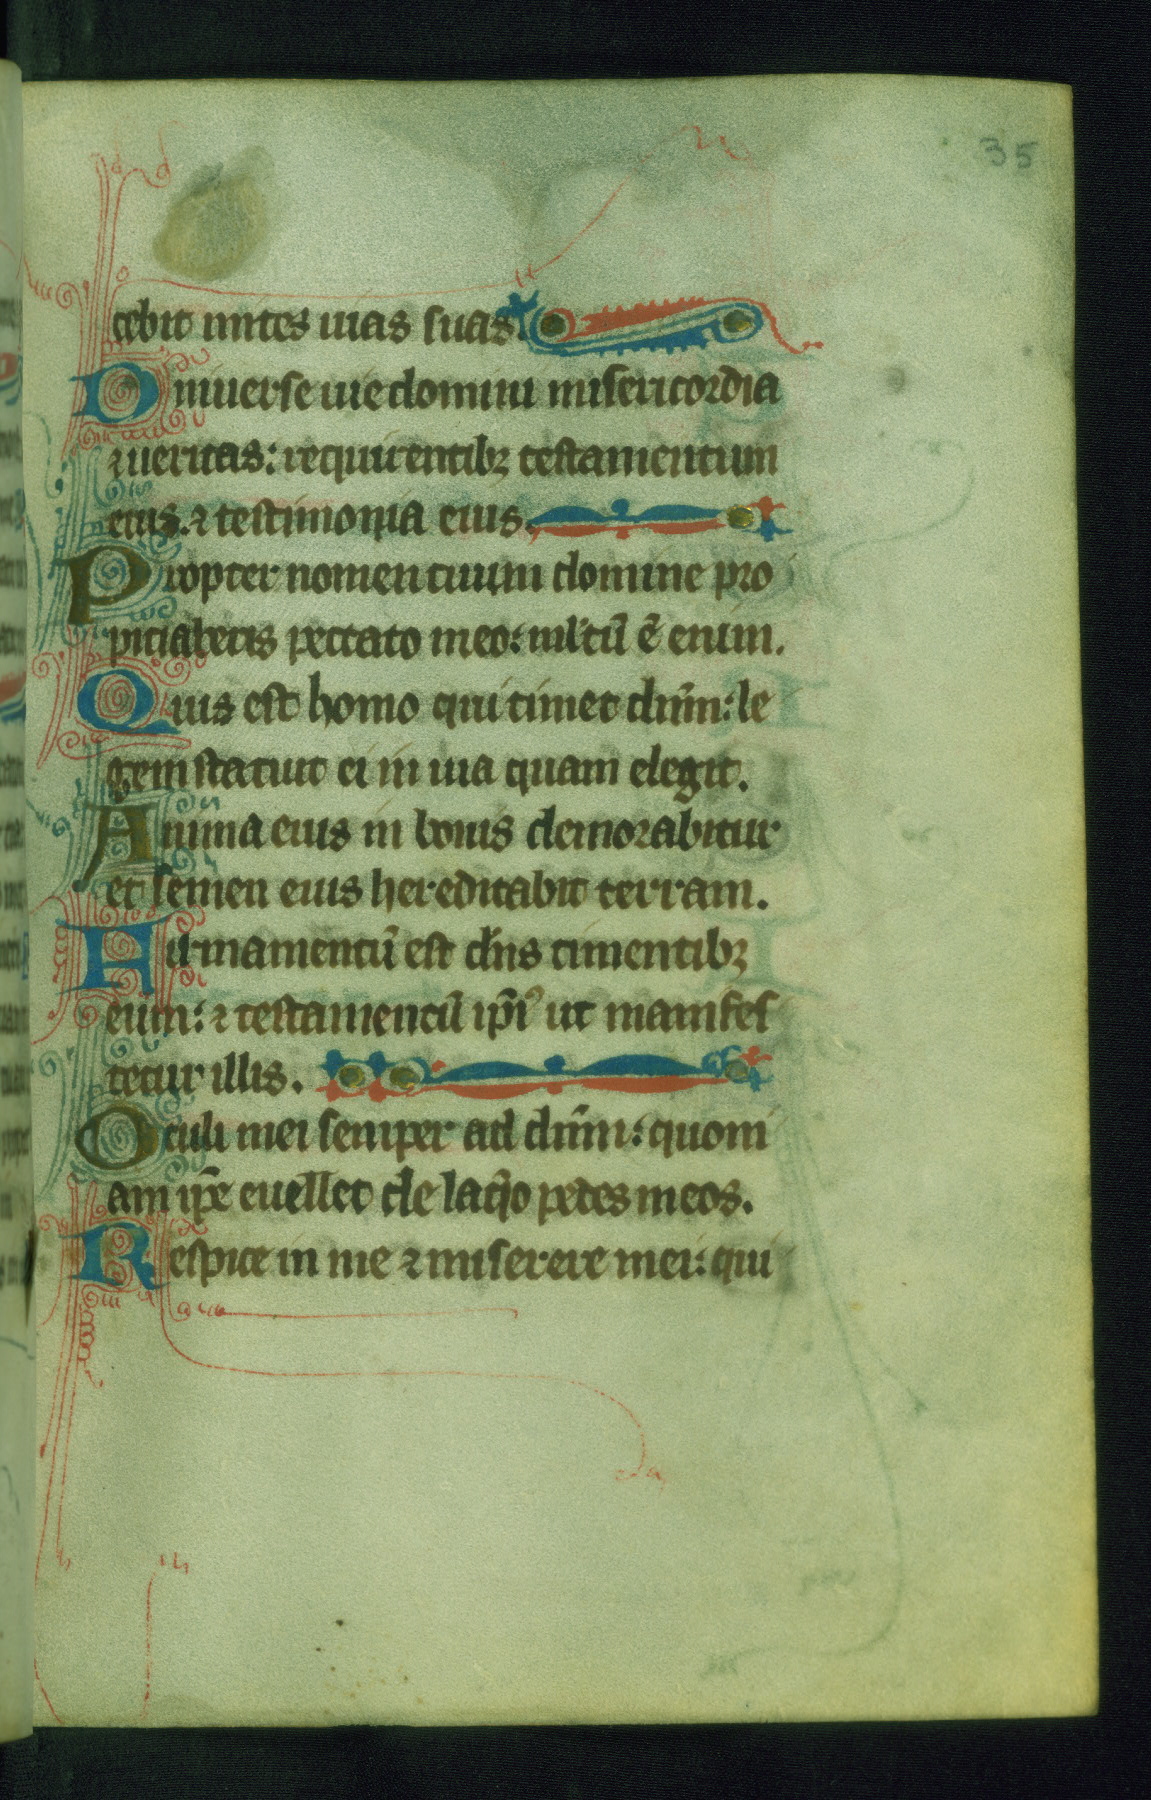 35
cebit mites uias suas.
Vniuerse uie domini misericordia
⁊ ueritas: requirentibꝫ testamentum
eius. ⁊ testimonia eius.
Propter nomen tuum domine pro
piciaberis peccato meo: mĺtũ ẽ enim.
Quis est homo qui timet dñm: le
gem statuit ei in uia quam elegit.
Anima eius in bonis demorabitur
et semen eius hereditabit terram.
Firmamentũ est dñs timentibꝫ
eum: ⁊ testamentũ ip̃iꝰ ut manifes
tetur illis.
Oculi mei semper ad dñm: quoni
am ip̃e euellet de laq̃o pedes meos.
Respice in me ⁊ miserere mei: qui